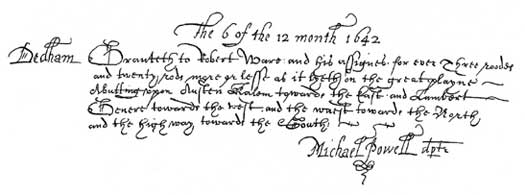 The 6 of the 12 month 1642
Dedham Graunteth to Robert Ware and his assignes for ever Three roodes
and twenty rods more or less as it lyeth on the great playne
Abutting upon Austen Kalem towards the East and Lambert
Genere towards the west and the waest towards the North
and the high way towards the South
Michael Powell dpt